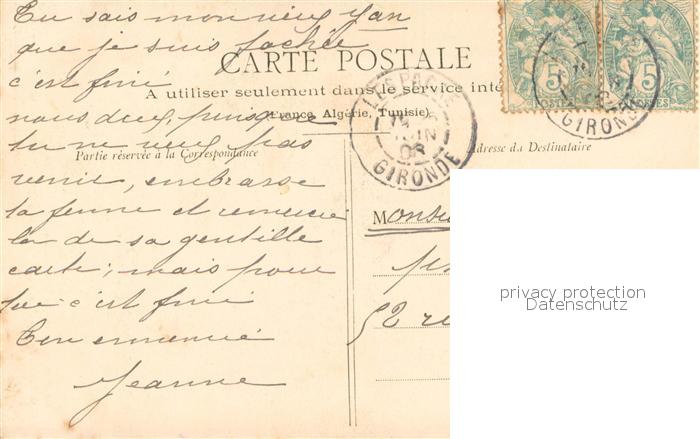 Tu sais mon vieux Jan
que je suis fachée
c'est fini
CARTE POSTALE
A utiliser seulement dans le service inté
nous deux, puisque
(France, Algérie, Tunisie)
tu ne veux pas
Partie réservée à la Correspondance
Adresse du Destinataire
venir, embrasse
ta femme et remercie
la de sa gentille
carte; mais pour
toi c'est fini
Ton ennemie
Jeanne
LESPARRE
JUIN
GIRONDE
5
POSTES
5
POSTES
GIRONDE
Monsieu
52 ru
privacy protection
Datenschutz